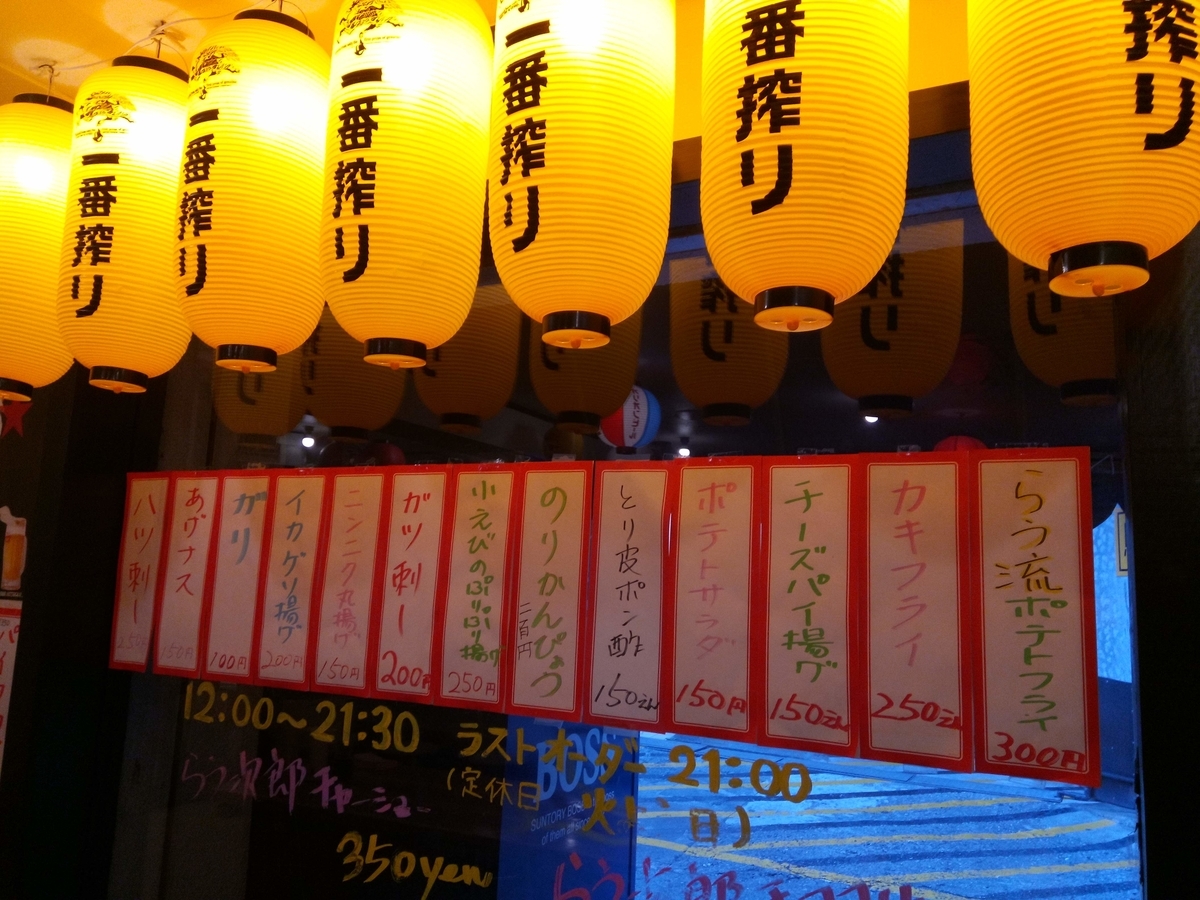 一番搾り
一番搾り
一番搾り
一番搾り
番搾り
搾り
らう流ポテトフライ
300円
カキフライ
250えん
チーズパイ揚げ
150えん
ポテトサラダ
150円
とり皮ポン酢
150えん
のりかんぴょう
二百円
小えびのぷりぷり揚げ
250円
ガツ刺し
200円
ニンニク丸揚げ
150円
イカゲソ揚げ
200円
ガリ
100円
あげナス
150円
ハツ刺し
250円
12:00～21:30
ラストオーダー 21:00
(定休日
火 日)
らう次郎チャーシュー
350yen
BOSS
SUNTORY BOSS